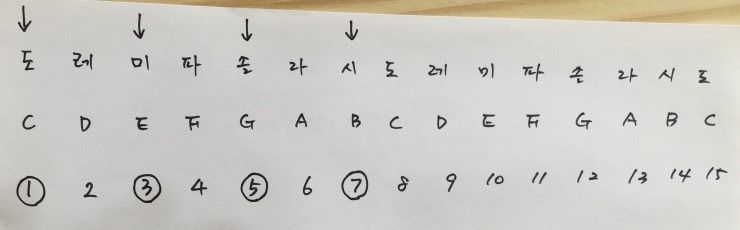 도 레 미 파 솔 라 시 도 레 미 파 솔 라 시 도
C D E F G A B C D E F G A B C
① 2 ③ 4 ⑤ 6 ⑦ 8 9 10 11 12 13 14 15